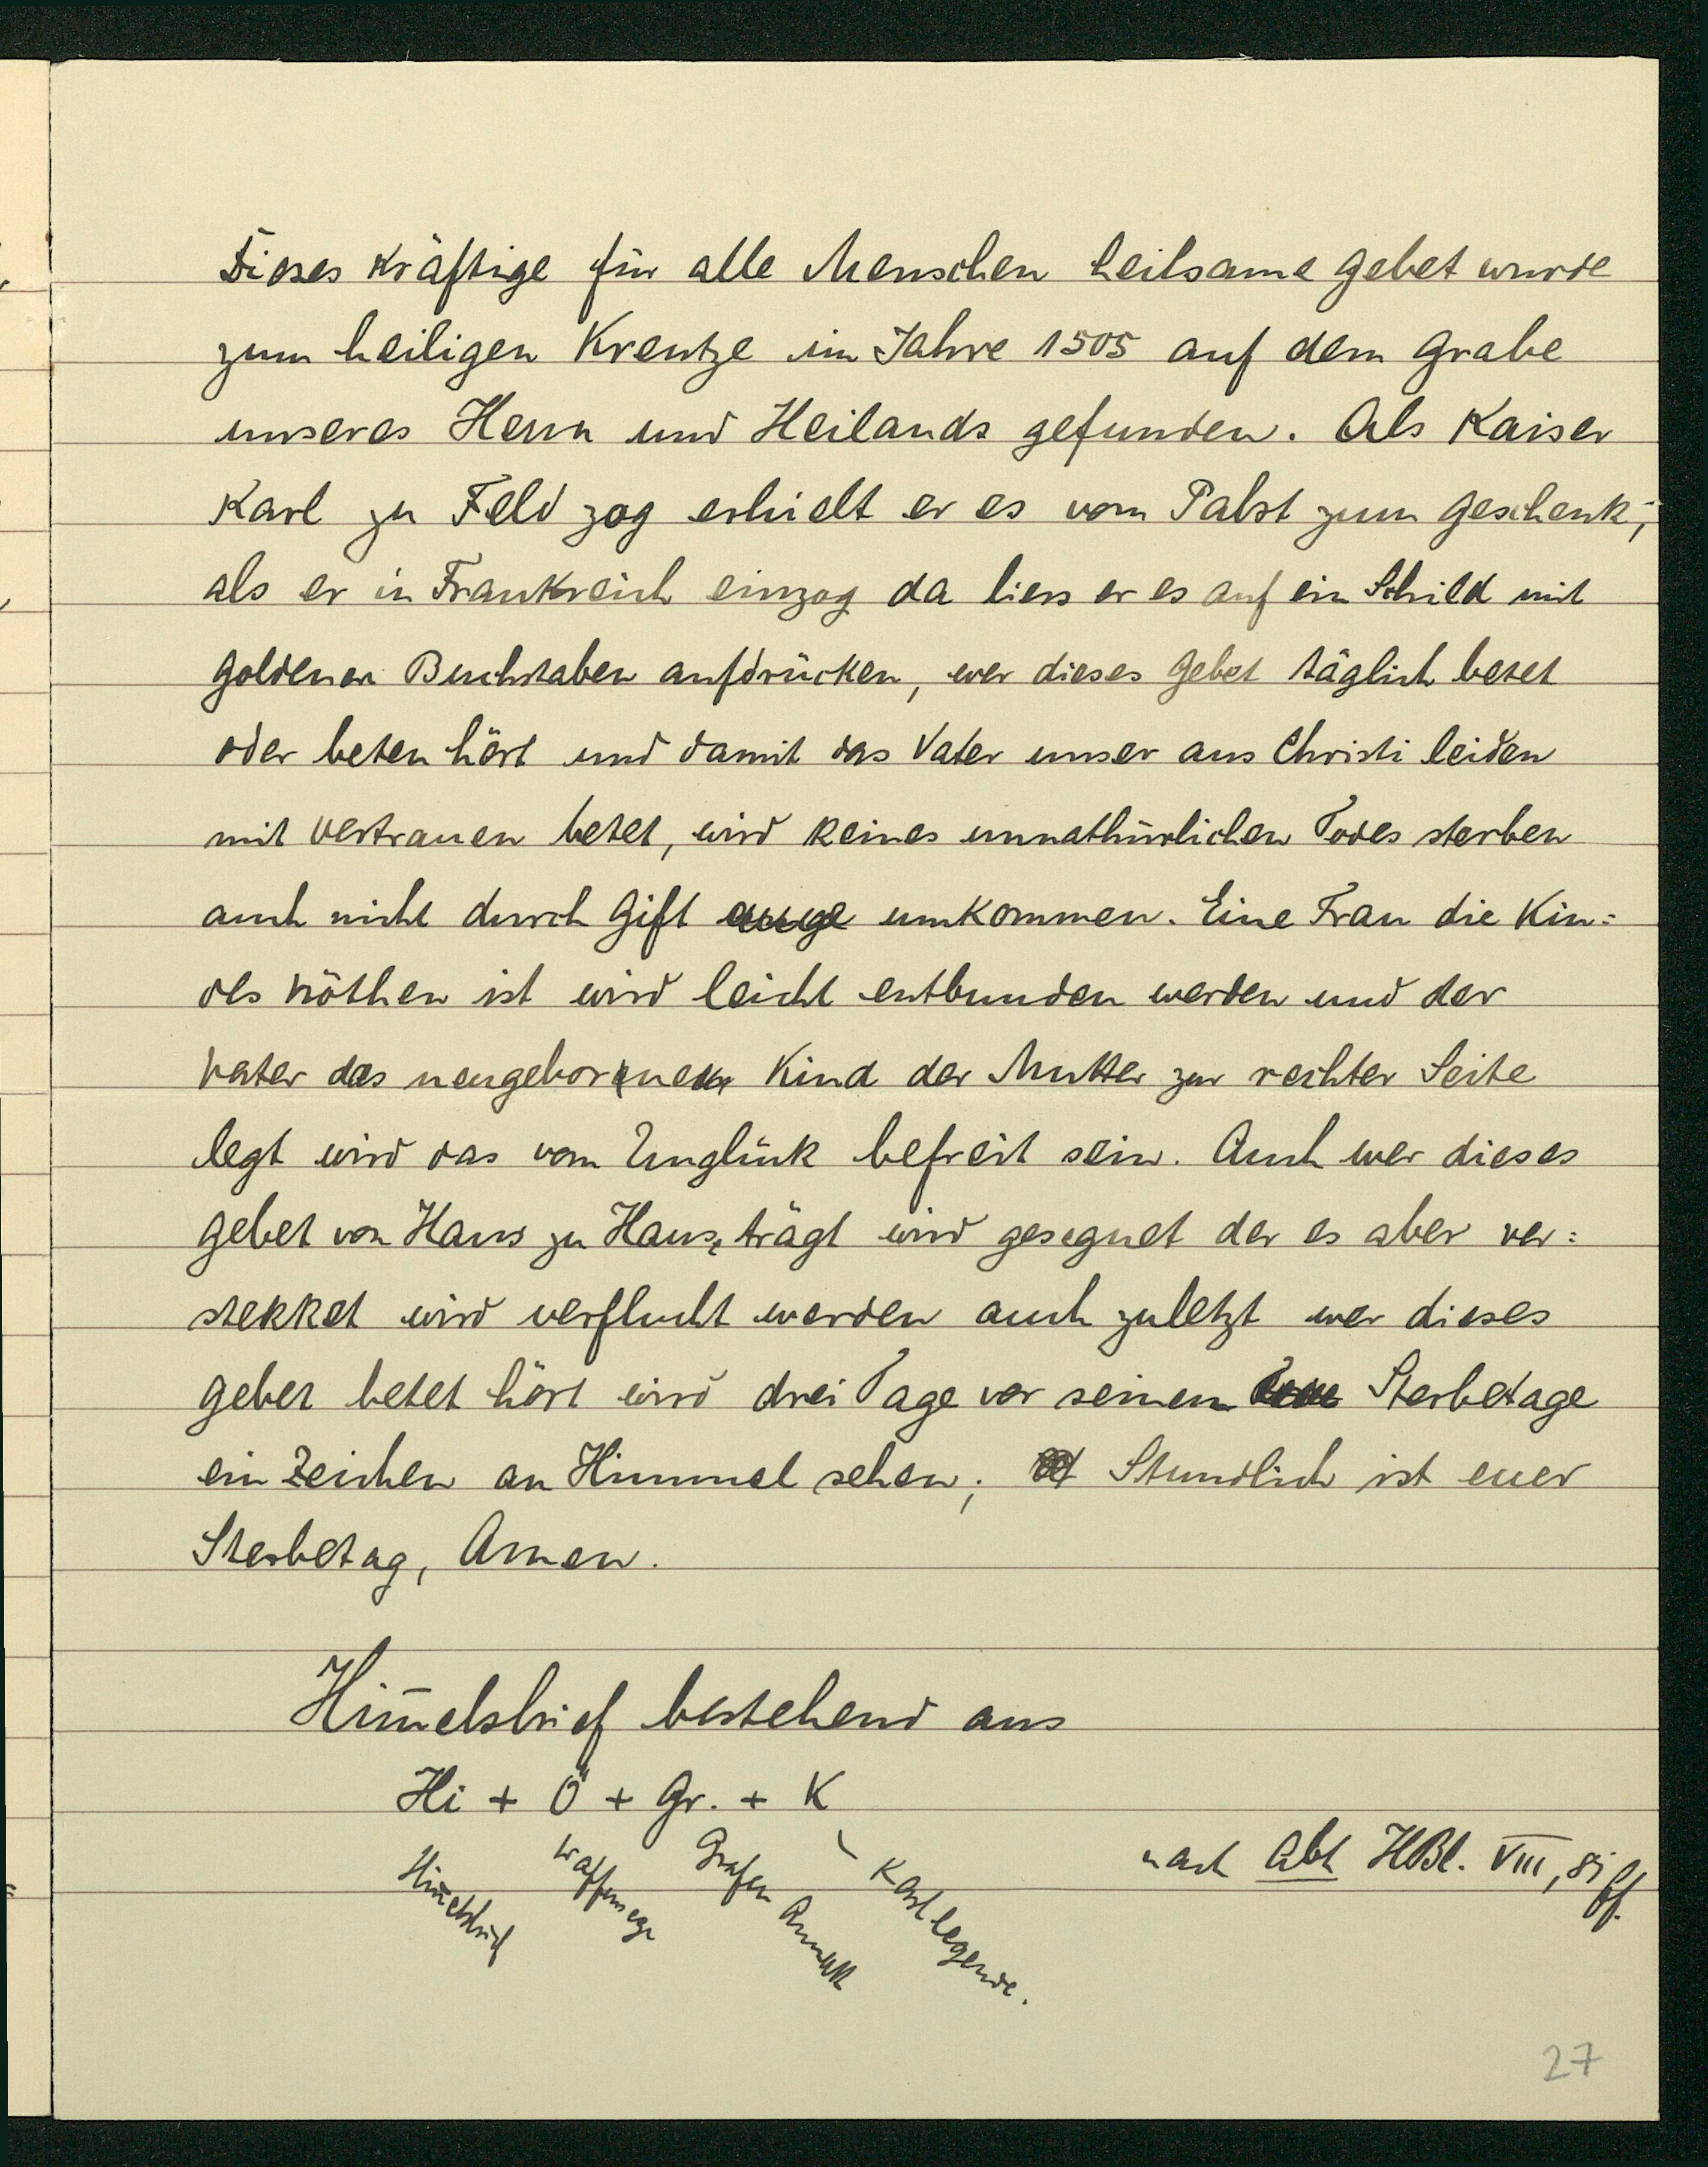 Dieses kräftige für alle Menschen heilsame Gebet wurde
zum heiligen Kreutze im Jahre 1505 auf dem Grabe
unseres Herrn und Heilands gefunden. Als Kaiser
Karl zu Feld zog erhielt er es vom Pabst zum Geschenk;
als er in Frankreich einzog da liess er es auf ein Schild mit
Goldenen Buchstaben aufdrücken, wer dieses Gebet täglich betet
oder beten hört und damit das Vater unser aus Christi leiden
mit Vertrauen betet, wird keines unnathürlichen Todes sterben
auch nicht durch Gift umkommen. Eine Frau die Kin=
des nöthen ist wird leicht entbunden werden und der
Vater das neugeborne Kind der Mutter zur rechter Seite
legt wird das vom Unglück befreit sein. Auch wer dieses
Gebet von Haus zu Haus trägt wird gesegnet der es aber ver=
stekket wird verflucht werden auch zuletzt wer dieses
Gebet betet hört wird drei Tage vor seinem Sterbetage
ein Zeichen an Himmel sehen; Stundlich ist euer
Sterbetag, Amen.
Him̅elsbrief bestehend aus
Hi + Ö + Gr. + K
Him̅elsbrief Waffensegn Grafen Amulett Karl legende.
nach Abt HBl. VIII, 81 ff.
27